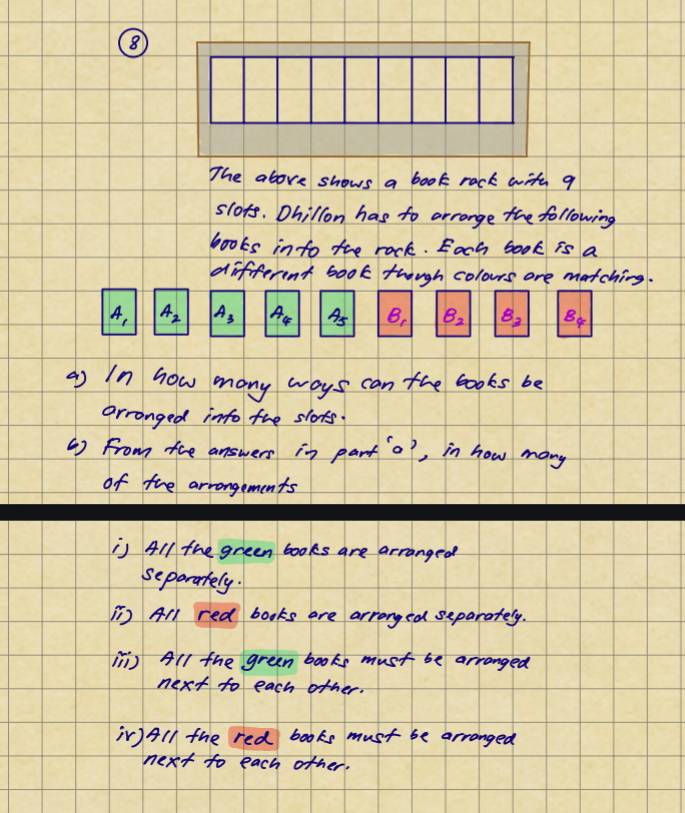 8
The above shows a book rack with 9
slots. Dhillon has to arrange the following
books into the rack. Each book is a
different book though colours are matching.
A₁ A₂ A₃ A₄ A₅ B₁ B₂ B₃ B₄
a) In how many ways can the books be
arranged into the slots.
b) From the answers in part 'a', in how many
of the arrangements
i) All the green books are arranged
separately.
ii) All red books are arranged separately.
iii) All the green books must be arranged
next to each other.
iv) All the red books must be arranged
next to each other.